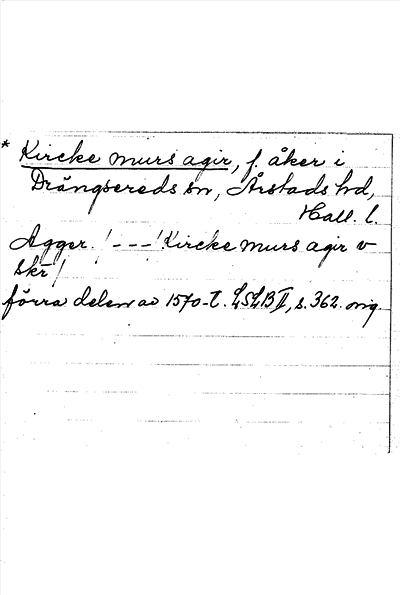 * Kircke murs agir, f. åker i
Drängsereds sn, Årstads hd,
Hall. l.
Agger. / - - - / Kircke murs agir v
skr /
förra delen av 1570-t. LSLB II, s. 362. orig.